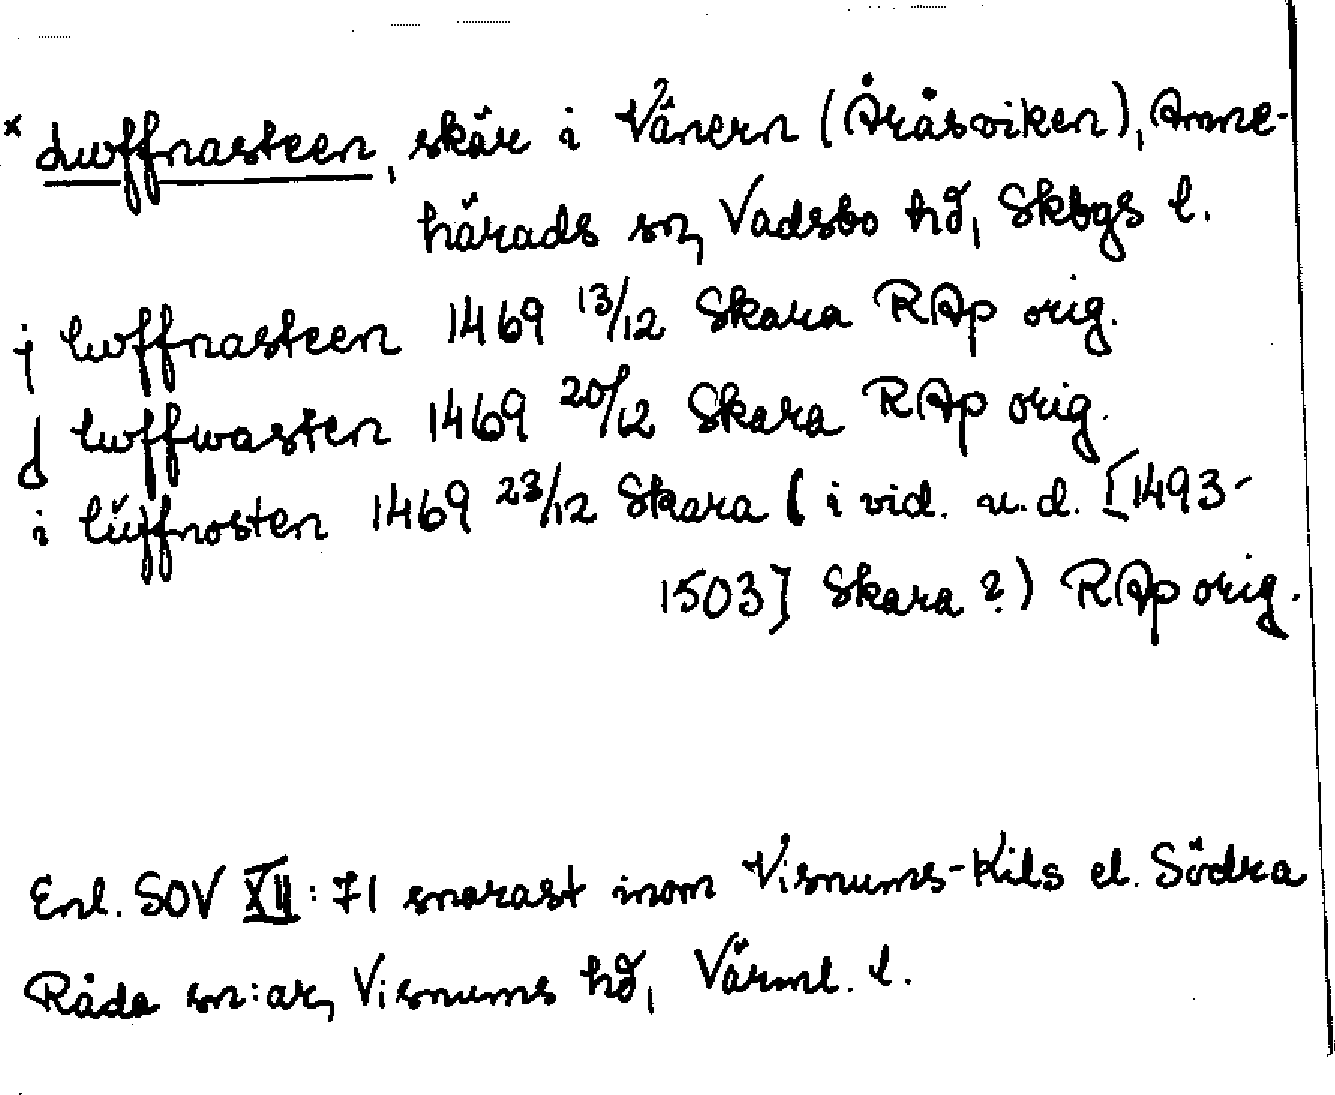 × Luffnasteen, skär i Vänern (Åråsviken), Amne-
härads sn, Vadsbo hd, Skbgs l.
j luffnasteen 1469 13/12 Skara RAp orig.
J luffwasten 1469 20/12 Skara RAp orig.
i lüffnosten 1469 23/12 Skara (i vid. u.d. [1493-
1503] Skara?) RAp orig.
Enl. SOV XII:71 snarast inom Visnums-Kils el. Södra
Råda sn:ar, Visnums hd, Värml. l.